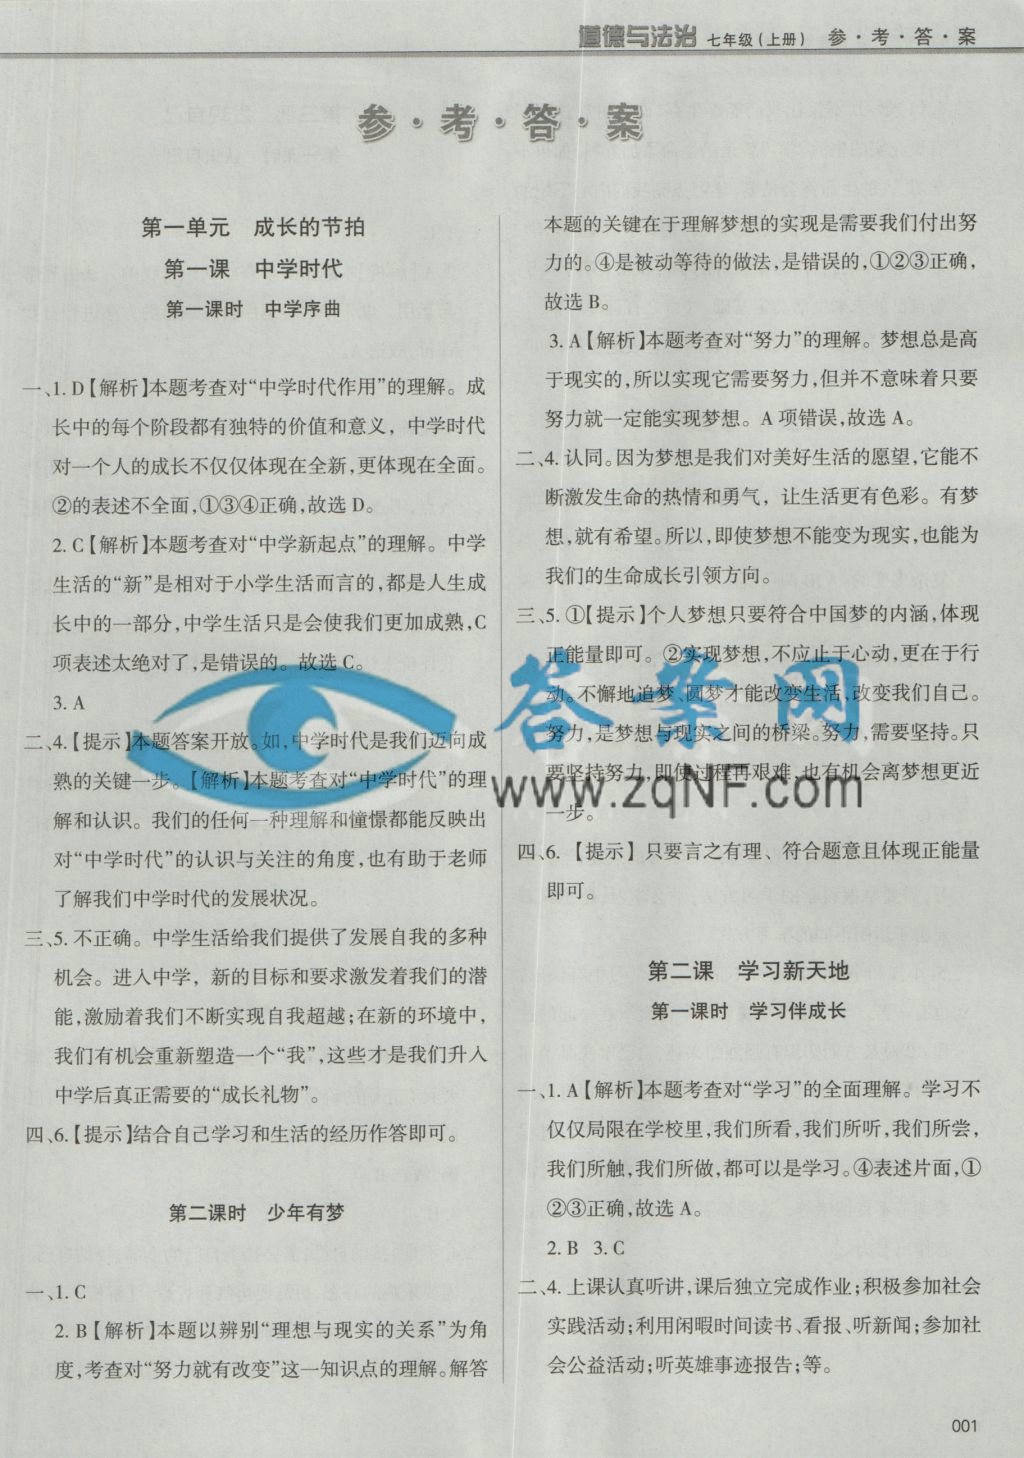 道德与法治 七年级(上册) 参·考·答·案
参·考·答·案
第一单元 成长的节拍
第一课 中学时代
第一课时 中学序曲
一、1. D【解析】本题考查对“中学时代作用”的理解。成
长中的每个阶段都有独特的价值和意义，中学时代
对一个人的成长不仅仅体现在全新,更体现在全面。
②的表述不全面,①③④正确,故选 D。
2. C【解析】本题考查对“中学新起点”的理解。中学
生活的“新”是相对于小学生活而言的,都是人生成
长中的一部分,中学生活只是会使我们更加成熟,C
项表述太绝对了,是错误的。故选 C。
3. A
二、4.【提示】本题答案开放。如,中学时代是我们迈向成
熟的关键一步。【解析】本题考查对“中学时代”的理
解和认识。我们的任何一种理解和憧憬都能反映出
对“中学时代”的认识与关注的角度,也有助于老师
了解我们中学时代的发展状况。
三、5. 不正确。中学生活给我们提供了发展自我的多种
机会。进入中学，新的目标和要求激发着我们的潜
能,激励着我们不断实现自我超越;在新的环境中,
我们有机会重新塑造一个“我”,这些才是我们升入
中学后真正需要的“成长礼物”。
四、6.【提示】结合自己学习和生活的经历作答即可。
第二课时 少年有梦
一、1. C
2. B【解析】本题以辨别“理想与现实的关系”为角
度,考查对“努力就有改变”这一知识点的理解。解答
本题的关键在于理解梦想的实现是需要我们付出努
力的。④是被动等待的做法,是错误的,①②③正确,
故选 B。
3. A【解析】本题考查对“努力”的理解。梦想总是高
于现实的,所以实现它需要努力,但并不意味着只要
努力就一定能实现梦想。A 项错误,故选 A。
二、4. 认同。因为梦想是我们对美好生活的愿望,它能不
断激发生命的热情和勇气，让生活更有色彩。有梦
想,就有希望。所以,即使梦想不能变为现实,也能为
我们的生命成长引领方向。
三、5. ①【提示】个人梦想只要符合中国梦的内涵,体现
正能量即可。②实现梦想,不应止于心动,更在于行
动。不懈地追梦、圆梦才能改变生活,改变我们自己。
努力,是梦想与现实之间的桥梁。努力,需要坚持。只
要坚持努力,即使过程再艰难,也有机会离梦想更近
一步。
四、6.【提示】只要言之有理、符合题意且体现正能量
即可。
第二课 学习新天地
第一课时 学习伴成长
一、1. A【解析】本题考查对“学习”的全面理解。学习不
仅仅局限在学校里,我们所看,我们所听,我们所尝,
我们所触,我们所做,都可以是学习。④表述片面,①
②③正确,故选 A。
2. B 3. C
二、4. 上课认真听讲,课后独立完成作业;积极参加社会
实践活动;利用闲暇时间读书、看报、听新闻;参加社
会公益活动;听英雄事迹报告;等。
001
答案网
www.zqNF.com